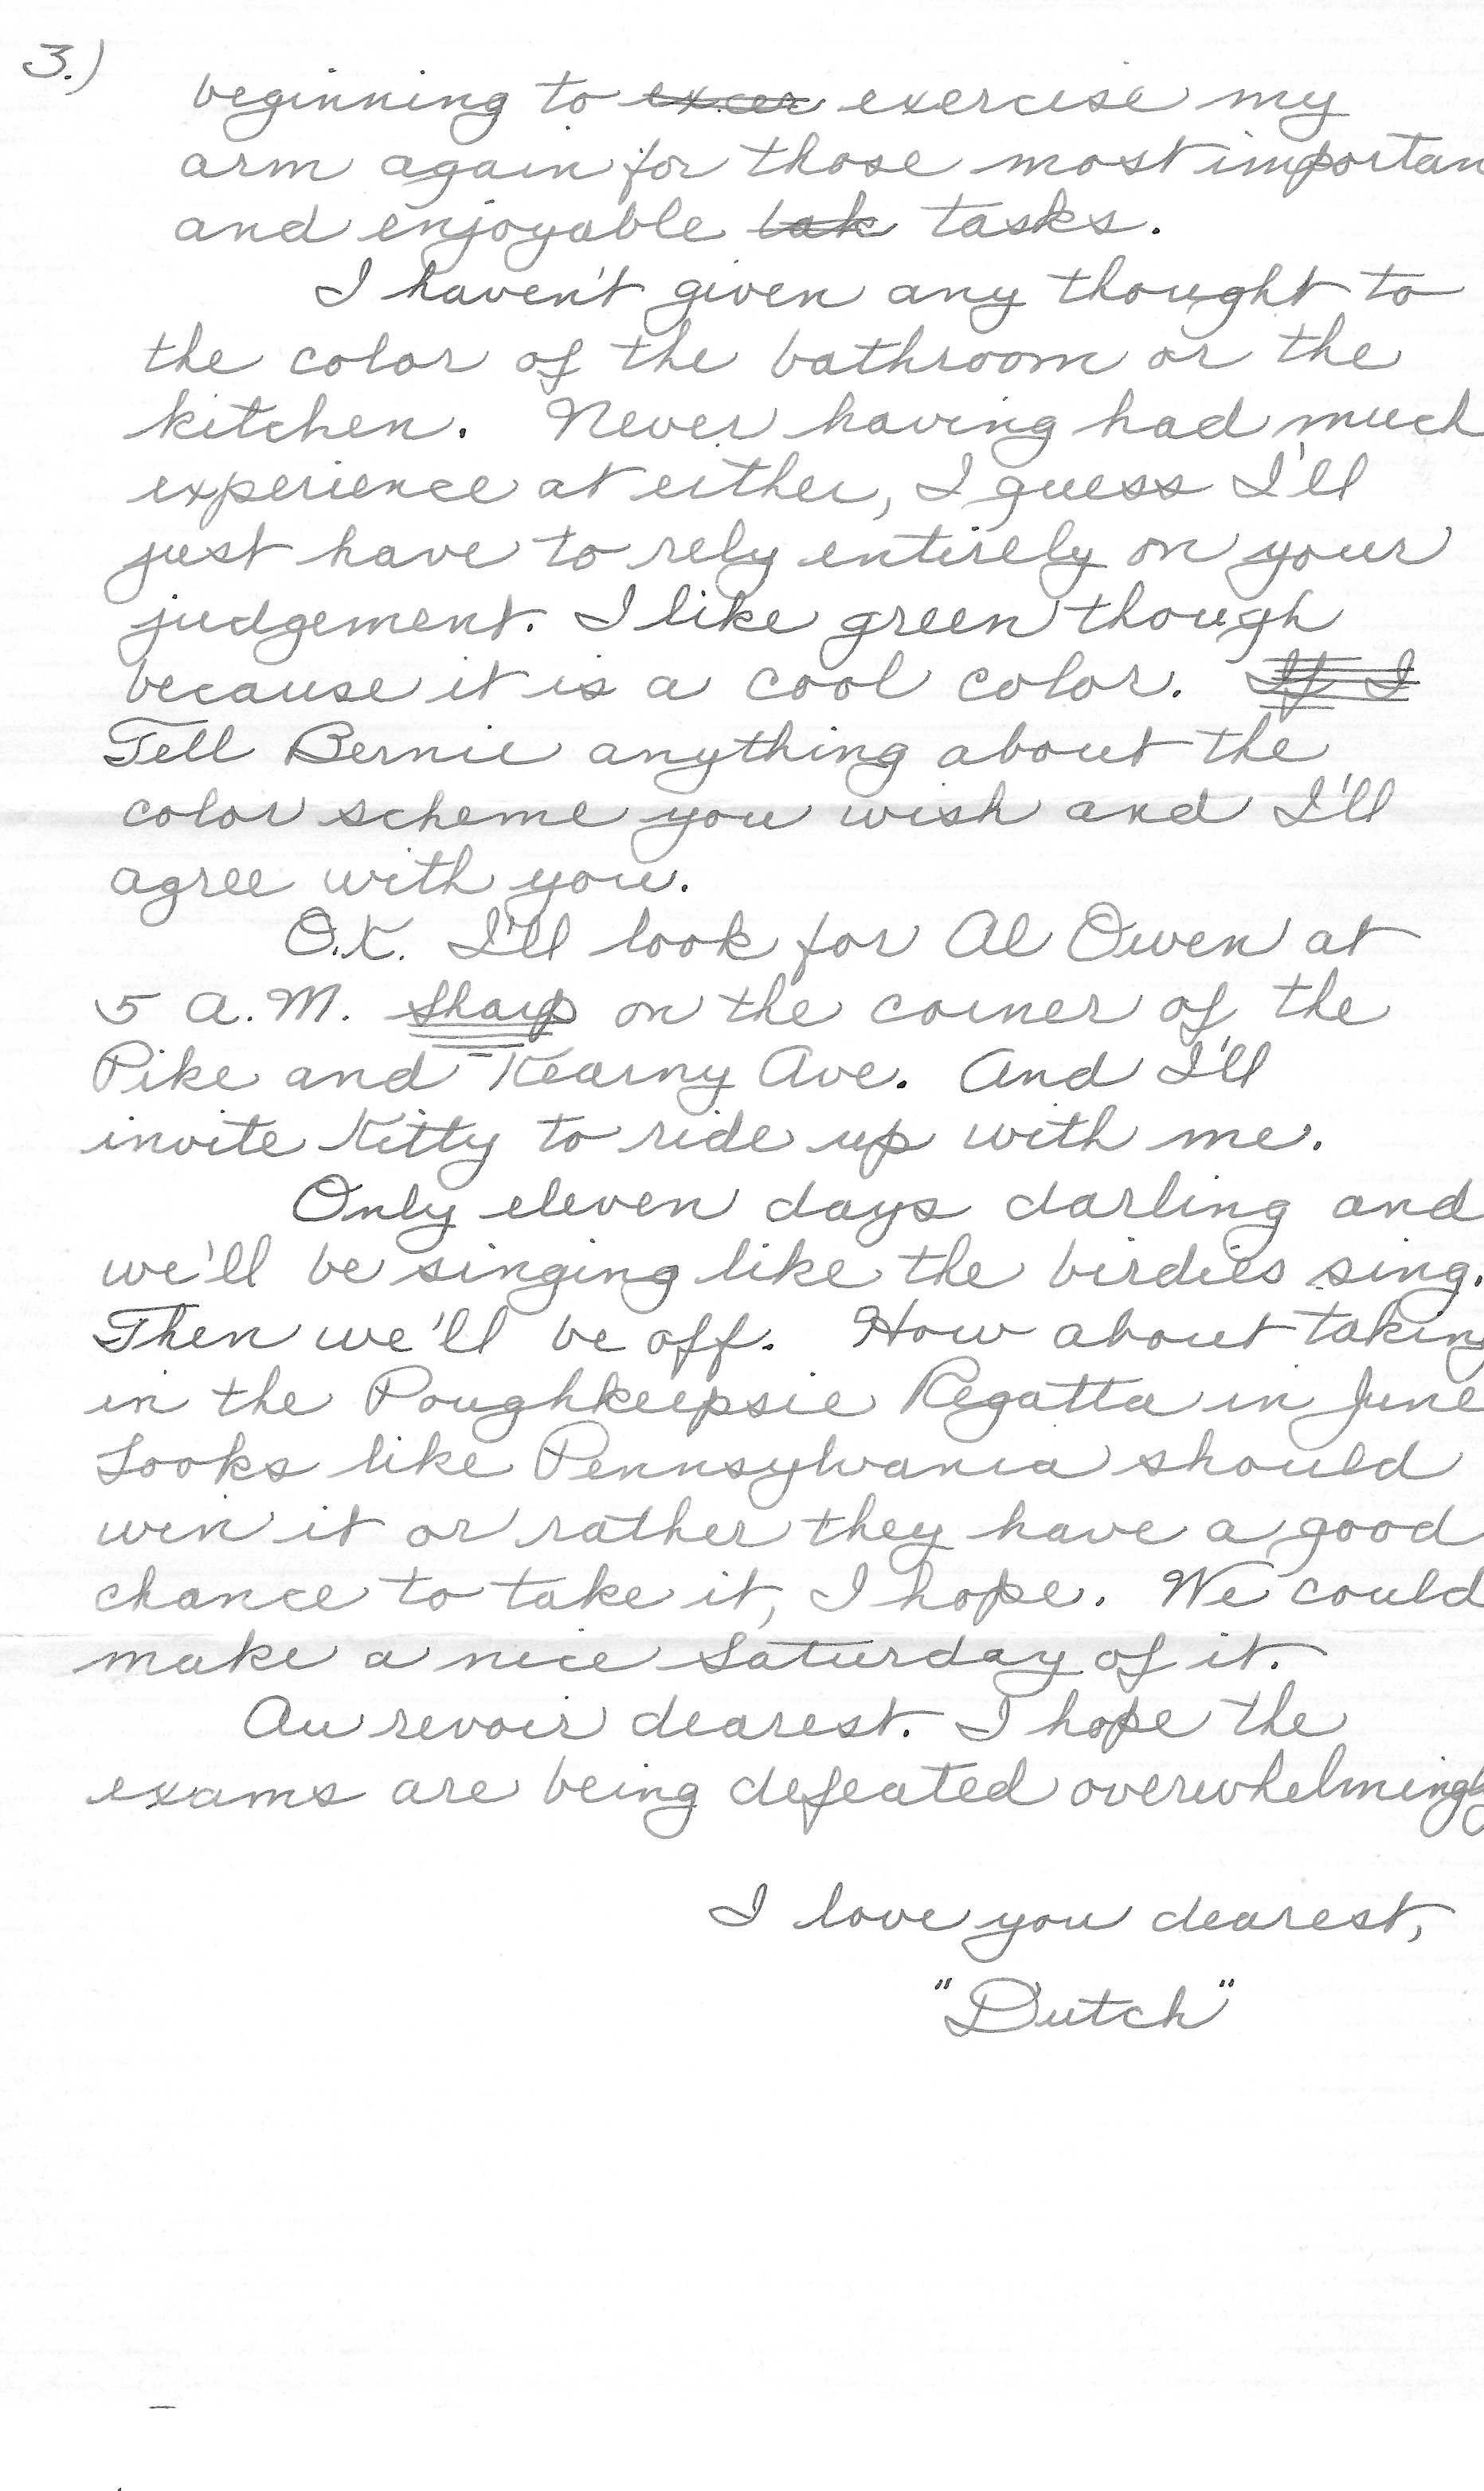 3.)
beginning to ~~excer~~ exercise my
arm again for those most importan
and enjoyable ~~tak~~ tasks.
I haven't given any thought to
the color of the bathroom or the
kitchen. Never having had much
experience at either, I guess I'll
just have to rely entirely on your
judgement. I like green though
because it is a cool color. ~~If I~~
Tell Bernie anything about the
color scheme you wish and I'll
agree with you.
O.K. I'll look for Al Owen at
5 A.M. sharp on the corner of the
Pike and Kearny Ave. And I'll
invite Kitty to ride up with me.
Only eleven days darling and
we'll be singing like the birdies sing.
Then we'll be off. How about taking
in the Poughkeepsie Regatta in June
Looks like Pennsylvania should
win it or rather they have a good
chance to take it, I hope. We could
make a nice Saturday of it.
Au revoir dearest. I hope the
exams are being defeated overwhelmingly
I love you dearest,
"Dutch"